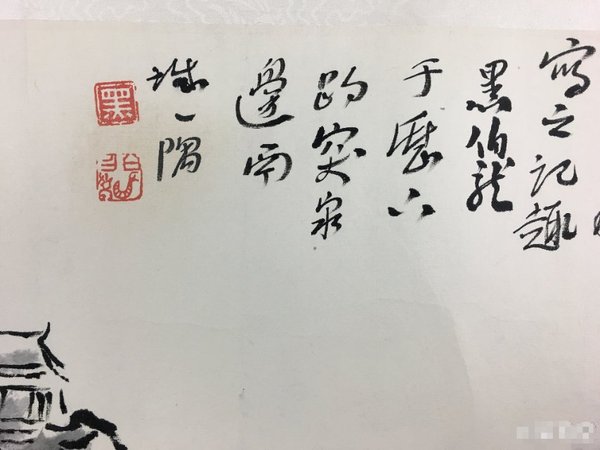 寫之記趣
黑伯龍
于歷下
趵突泉
邊
城一隅
黑